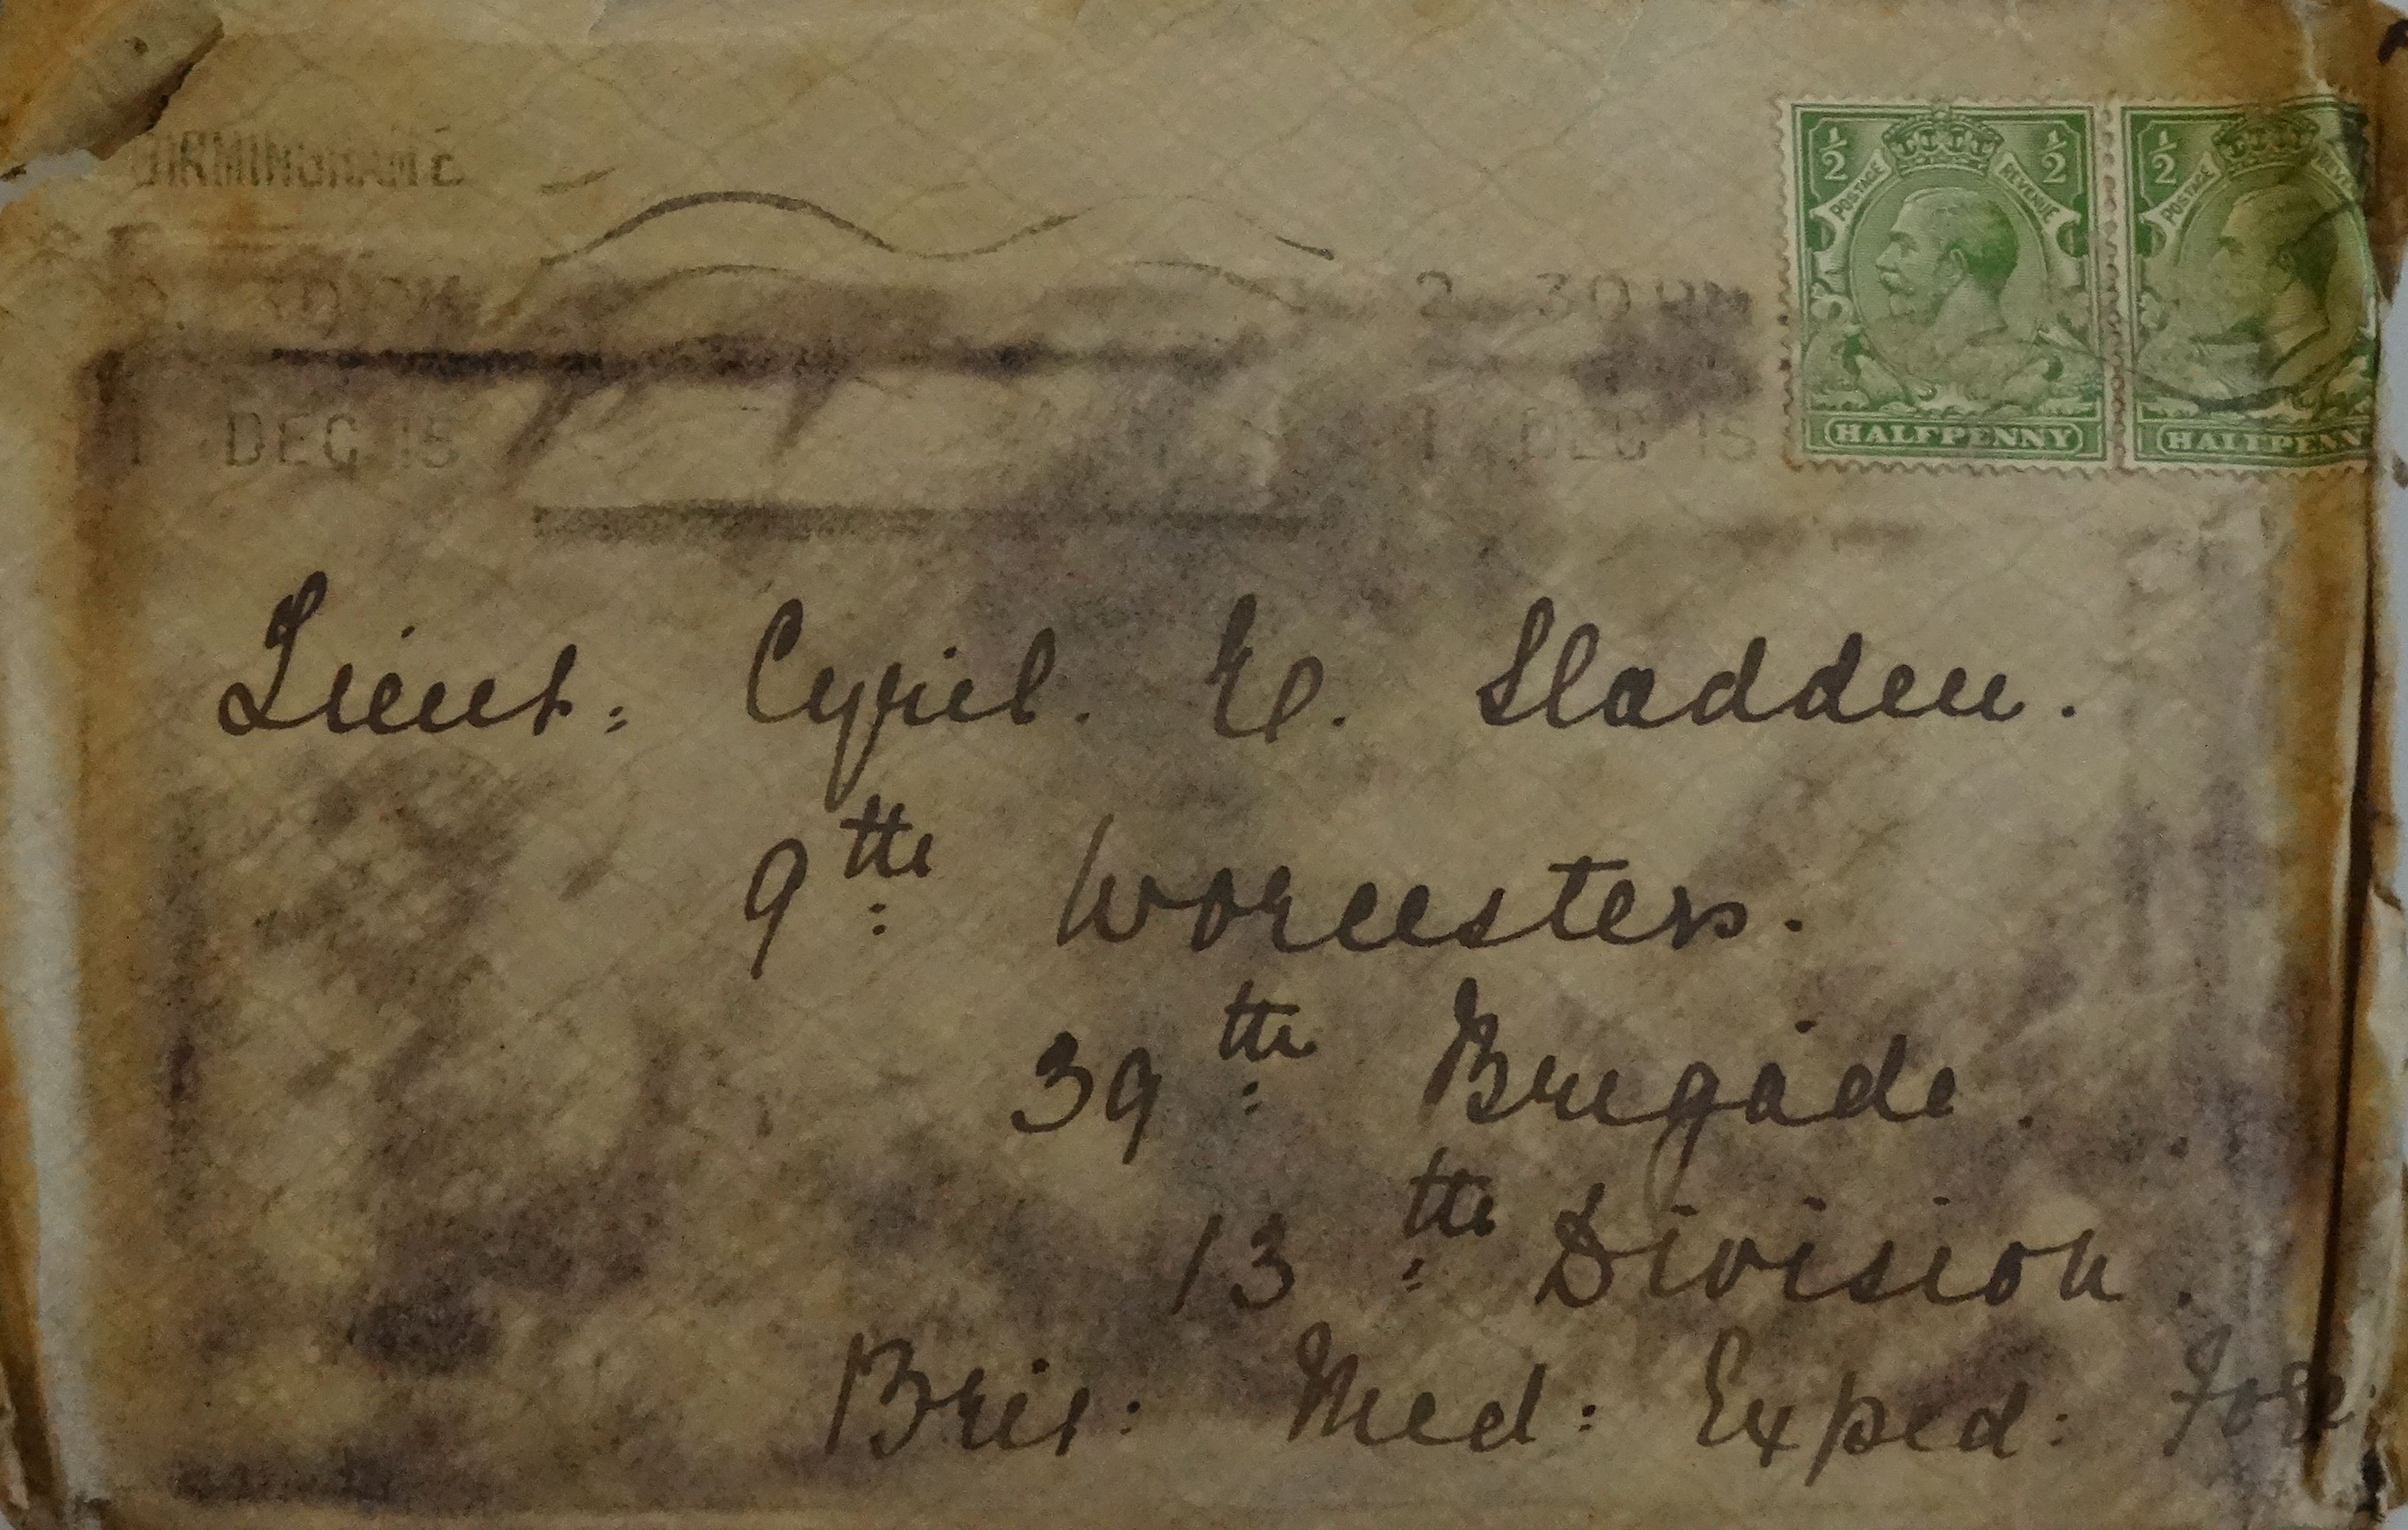 BIRMINGHAM E
2 30 PM
2 30 PM
1 DEC 15
1 DEC 15
½ ½
POSTAGE REVENUE
HALFPENNY
½
POSTAGE REVE
HALFPENN
Lieut: Cyril. E. Sladden.
9th Worcesters.
39th Brigade.
13th Division.
Brit: Med: Exped: Force